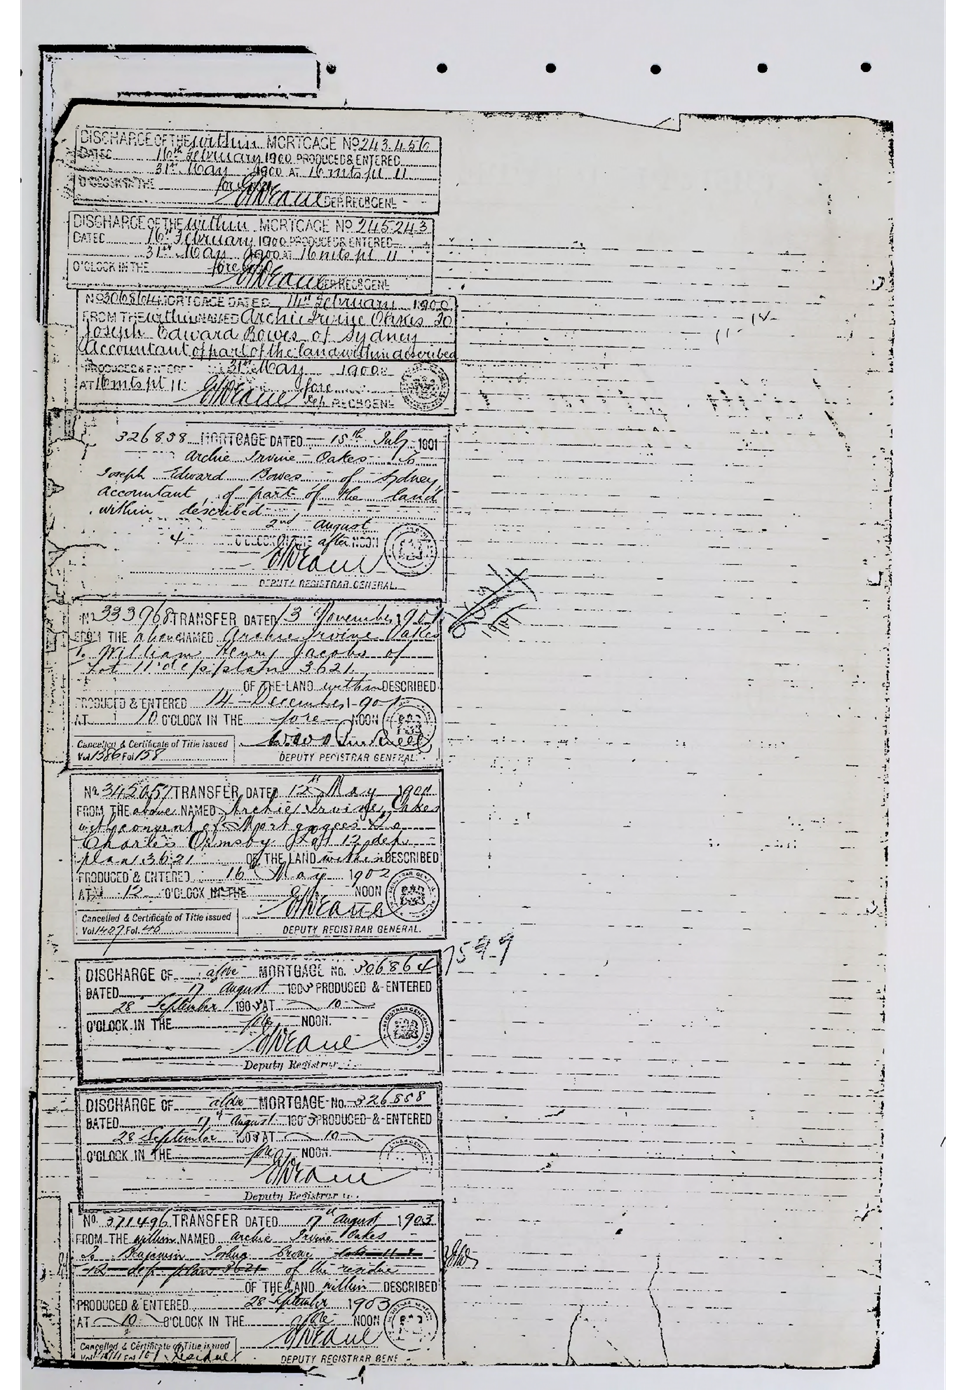 DISCHARGE OF THE within MORTGAGE No 243456
DATED 16th February 1900 PRODUCED & ENTERED
31st May 1900 AT 16 mts pt 11
O'CLOCK IN THE fore
DEP. REG GENL
DISCHARGE OF THE within MORTGAGE No 245243
DATED 16th February 1900 PRODUCED & ENTERED
31st May 1900 AT 16 mts pt 11
O'CLOCK IN THE fore
DEP REG GENL
No 306864 MORTGAGE DATED 14th February 1900
FROM THE within NAMED Archie Irvine Oakes To
Joseph Edward Bowes of Sydney
Accountant of part of the land within described
PRODUCED & ENTERED 31st May 1900
AT 16 mts pt 11 fore
Dep. REG GENL
11-14
326858 MORTGAGE DATED 15th July 1901
Archie Irvine Oakes to
Joseph Edward Bowes of Sydney
accountant, of part of the land
within described
2nd August
4 O'CLOCK IN THE after NOON
DEPUTY REGISTRAR GENERAL.
No 333968 TRANSFER DATED 13 November 1901
FROM THE above NAMED Archie Irvine Oakes
To William Henry Jacobs of
Lot 11 dep plan 3621
OF THE LAND within DESCRIBED
PRODUCED & ENTERED 14 December 1901
AT 10 O'CLOCK IN THE fore NOON
Cancelled & Certificate of Title issued
Vol 1386 Fol 158
DEPUTY REGISTRAR GENERAL.
No. TRANSFER DATED 12th May
FROM THE above NAMED Archie Irvine Oakes
with consent of Mortgagee to
Charles Ormsby Lot 12 dep.
plan 3621 OF THE LAND within DESCRIBED
PRODUCED & ENTERED 16th May 1902
AT 12 O'CLOCK IN THE NOON
Cancelled & Certificate of Title issued
Vol 1407 Fol. 40
DEPUTY REGISTRAR GENERAL.
DISCHARGE OF MORTGAGE No. 306864
DATED 17 August 1903 PRODUCED & ENTERED
28 September 1903 AT 10
O'CLOCK IN THE fore NOON.
Deputy Registrar
DISCHARGE OF MORTGAGE No. 326858
DATED 17 August 1903 PRODUCED & ENTERED
28 September 1903 AT 10
O'CLOCK IN THE fore NOON.
Deputy Registrar
No. 371496 TRANSFER DATED 17th August 1903
FROM THE within NAMED Archie Irvine Oakes
to lots 11 &
12 dep. plan 3621 of the residue
OF THE LAND within DESCRIBED
PRODUCED & ENTERED 28 September 1903
AT 10 O'CLOCK IN THE fore NOON
Cancelled & Certificate of Title issued
residue
DEPUTY REGISTRAR GENE